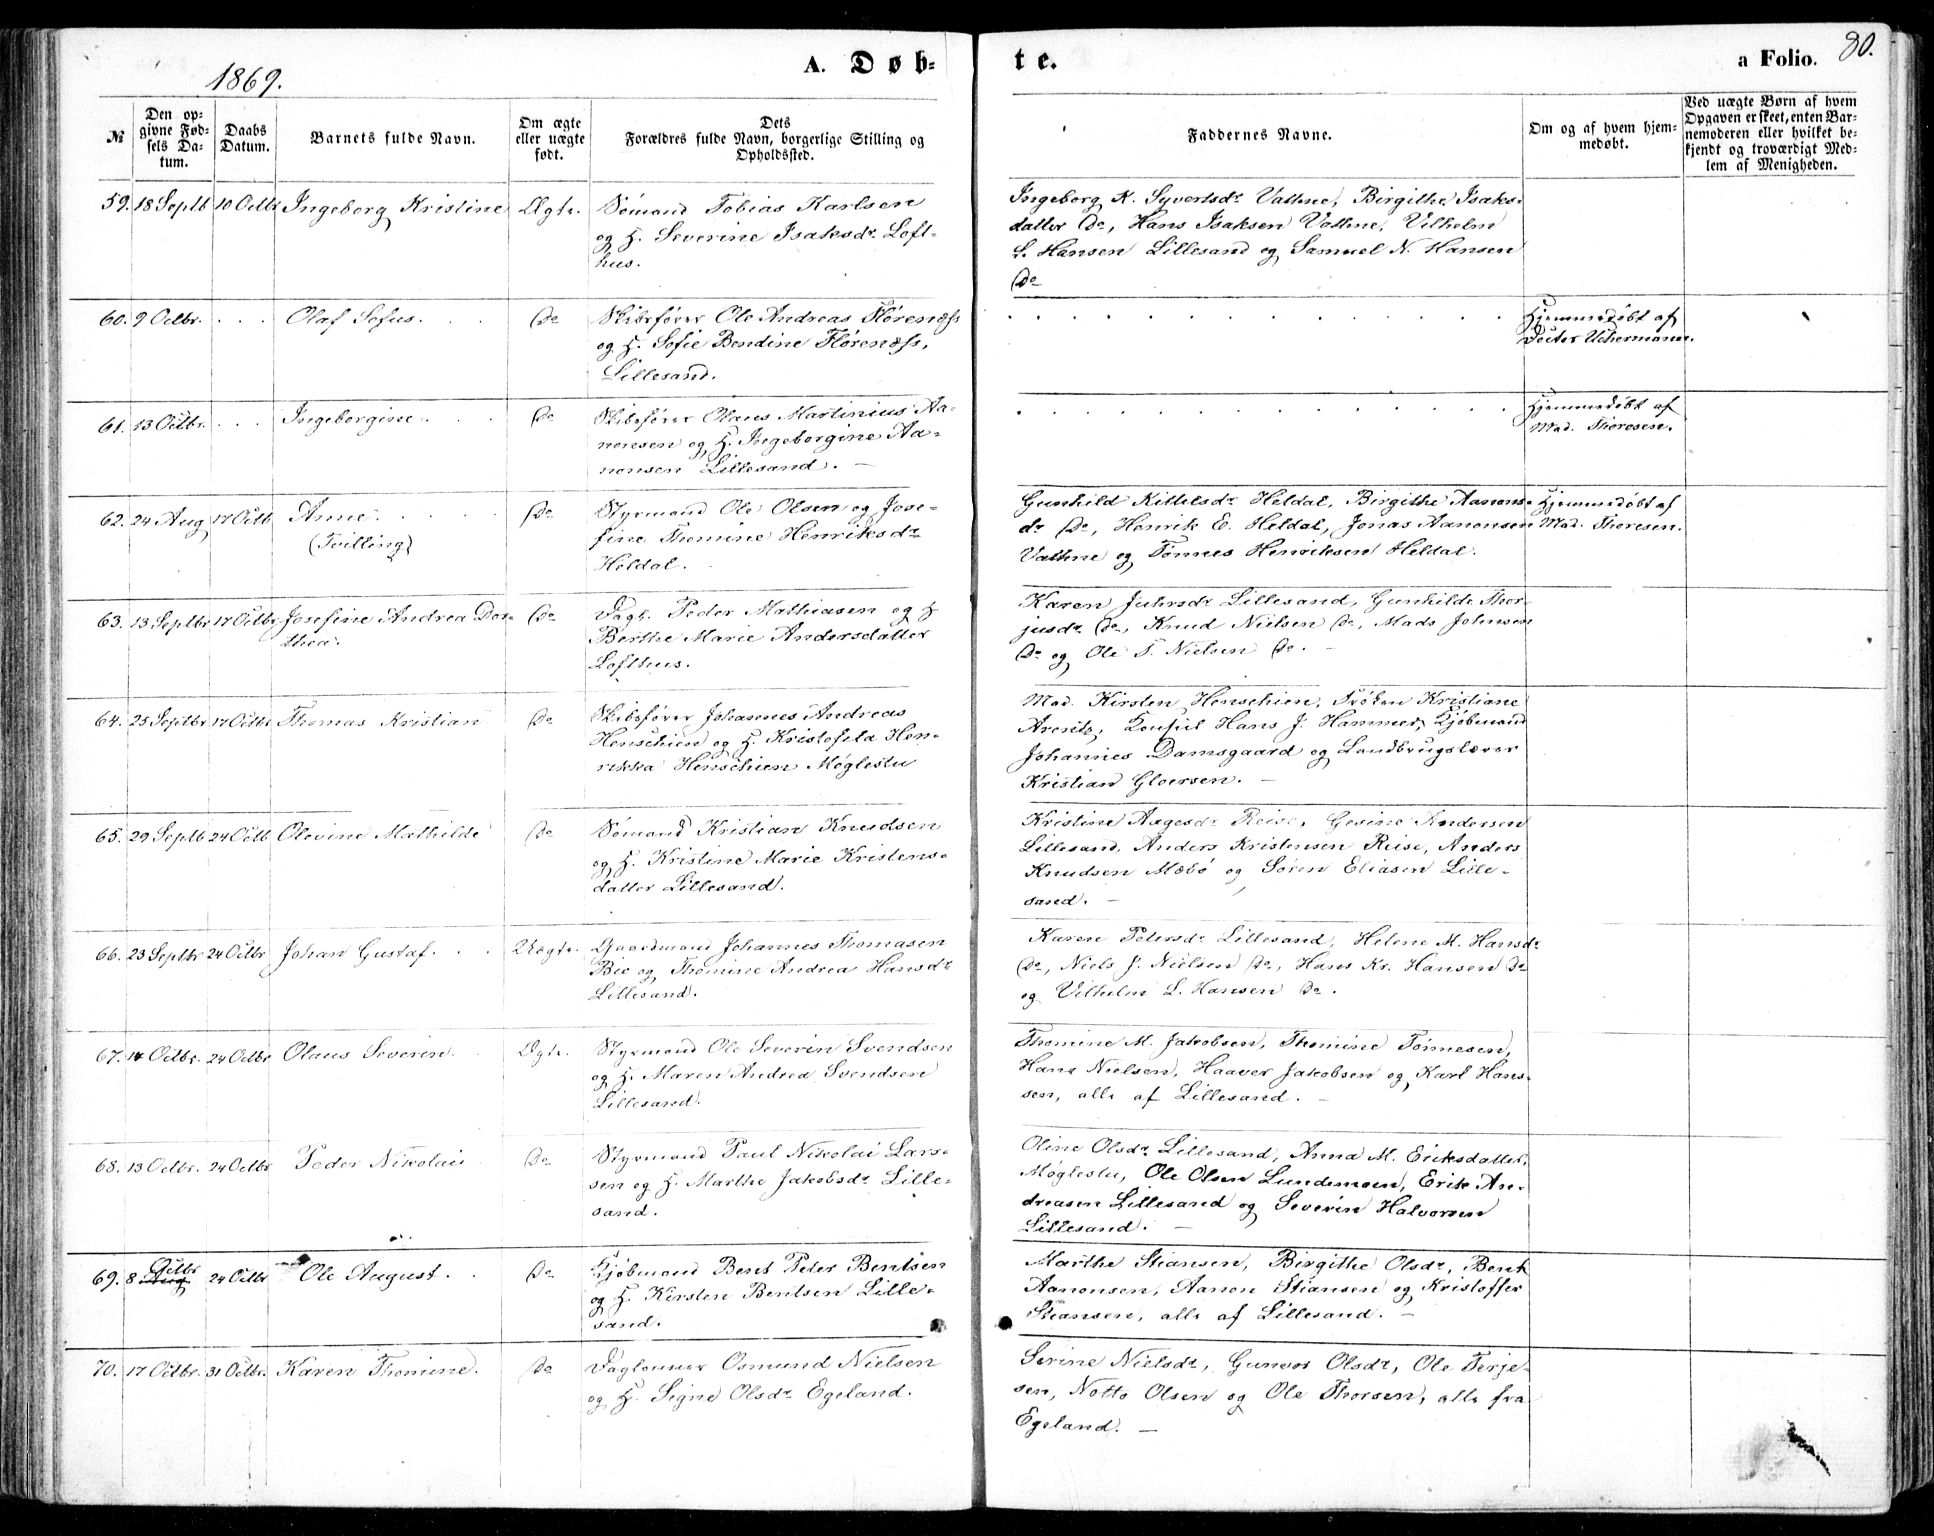 1869.
A. Døb-
te.
a Folio. 80.
№
Den op-
givne Fød-
sels Da-
tum.
Daabs
Datum.
Barnets fulde Navn.
Om ægte
eller uægte
født.
Dets
Forældres fulde Navn, borgerlige Stilling og
Opholdssted.
Faddernes Navne.
Om og af hvem hjem-
medøbt.
Ved uægte Børn af hvem
Opgaven er skeet, enten Bar-
nemoderen eller hvilket be-
kjendt og troværdigt Med-
lem af Menigheden.
59. 18 Septb 10 Octbr Ingeborg Kristine Ægte. Sømand Tobias Karlsen
og H. Severine Isaksdr Loft-
hus.
Ingeborg K. Syvertsdr Vathne, Birgithe Isaks-
datter Do, Hans Isaksen Vathne, Vilhelm
L. Hansen Lillesand og Samuel N. Hansen
Do
60. 9 Octbr. . . . Olaf Sofus. . . Do Skibsfører Ole Andreas Flørenæss
og H. Sofie Bendine Flørenæss,
Lillesand.
Hjemmedøbt af
Doctor Uchermann.
61. 13 Octbr. . . . Ingeborgine. . . Do Skibsfører Olaus Martinius Aa-
nonsen og H. Ingeborgine Aa-
nonsen Lillesand. —
Hjemmedøbt af
Mad. Thoresen.
62. 24 Aug 17 Octb Anne. . . .
(Tvilling) Do Styrmand Ole Olsen og Jose-
fine Thomine Henriksdr
Heldal.
Gunhild Kittelsdr Heldal, Birgithe Aanons-
dr Do, Henrik E. Heldal, Jonas Aanonsen
Vathne og Tønnes Henriksen Heldal.
Hjemmedøbt af
Mad. Thoresen.
63. 13 Septbr 17 Octbr Josefine Andrea Dor-
thea. Do Dagl. Peder Mathiasen og H
Berthe Marie Andersdatter
Lofthus.
Karen Juhrsdr Lillesand, Gunhild Thor-
jusdr Do, Knud Nielsen Do, Mads Johnsen
Do og Ole T. Nielsen Do. —
64. 25 Septbr 17 Octbr Thomas Kristian Do Skibsfører Johannes Andreas
Henschien og H. Kristofela Hen-
rikka Henschien Møglestu
Mad. Kirsten Henschien, Frøken Kristiane
Arentz, Konsul Hans J. Hammer, Kjøbmand
Johannes Damsgaard og Landbrugslærer
Kristian Gloersen. —
65. 29 Septb 24 Octb Olevine Mathilde Do Sømand Kristian Knudsen
og H. Kristine Marie Kristens-
datter Lillesand.
Kristine Aagesdr Reise, Gesine Andersen
Lillesand, Anders Kristensen Reise, Anders
Knudsen Mæbø og Søren Eliasen Lille-
sand. —
66. 23 Septbr 24 Octbr Johan Gustaf. . . Uægte. Gaardmand Johannes Thomasen
Bie og Thomine Andrea Hansdr
Lillesand.
Karen Petersdr Lillesand, Helene M. Hansdr
Do, Niels J. Nielsen Do, Hans Kr. Hansen Do
og Vilhelm L. Hansen Do.
67. 14 Octbr. 24 Octbr Olaus Severin. . Ægte. Styrmand Ole Severin Svendsen
og H. Maren Andrea Svendsen
Lillesand.
Thomine M. Jakobsen, Thomine Tønnesen,
Hans Nielsen, Haaver Jakobsen og Karl Han-
sen, alle af Lillesand. —
68. 13 Octbr. 24 Octbr Peder Nikolai . Do Styrmand Paul Nikolai Lars-
sen og H. Marthe Jakobsdr Lille-
sand.
Oline Olsdr Lillesand, Anna M. Eriksdatter,
Møglestu, Ole Olsen Lundemoen, Erik An-
dreasen Lillesand og Severin Halvorsen
Lillesand. —
69. 8 Aug Octbr 24 Octbr Ole August. . Do Kjøbmand Bent Peter Bentsen
og H. Kirsten Bentsen Lille-
sand.
Marthe Stiansen, Birgithe Olsdr, Bent
Aanonsen, Aanon Stiansen og Kristoffer
Stiansen, alle af Lillesand. —
70. 17 Octbr. 31 Octbr. Karen Thomine. Do Daglønner Osmund Nielsen
og H. Signe Olsdr Egeland.
Serine Nielsdr, Gunvor Olsdr, Ole Terje-
sen, Notto Olsen og Ole Thorsen, alle fra
Egeland. —